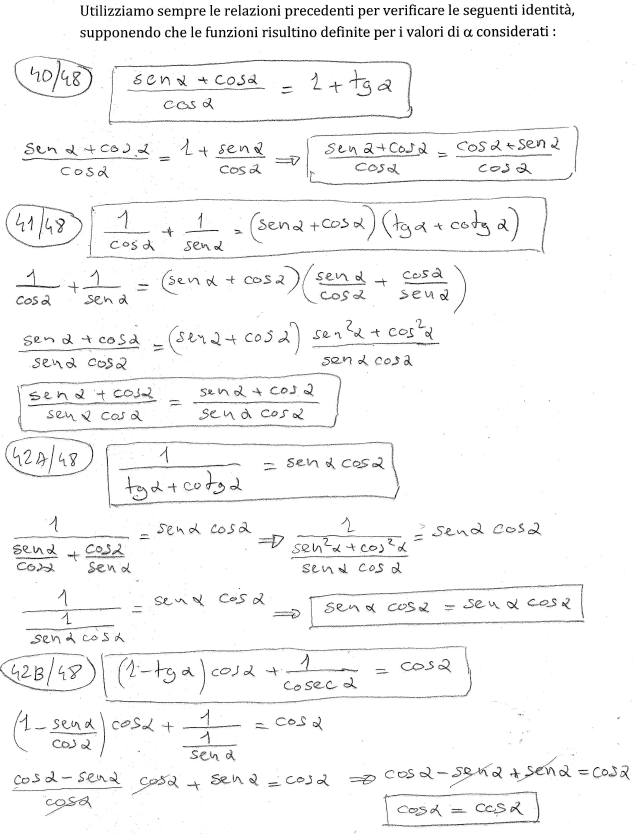 Utilizziamo sempre le relazioni precedenti per verificare le seguenti identità,
supponendo che le funzioni risultino definite per i valori di α considerati :
40/48 (sen α + cos α)/(cos α) = 1 + tg α
(sen α + cos α)/(cos α) = 1 + (sen α)/(cos α) ⇒ (sen α + cos α)/(cos α) = (cos α + sen α)/(cos α)
41/48 1/(cos α) + 1/(sen α) = (sen α + cos α)(tg α + cotg α)
1/(cos α) + 1/(sen α) = (sen α + cos α)((sen α)/(cos α) + (cos α)/(sen α))
(sen α + cos α)/(sen α cos α) = (sen α + cos α) (sen²α + cos²α)/(sen α cos α)
(sen α + cos α)/(sen α cos α) = (sen α + cos α)/(sen α cos α)
42A/48 1/(tg α + cotg α) = sen α cos α
1/((sen α)/(cos α) + (cos α)/(sen α)) = sen α cos α ⇒ 1/((sen²α + cos²α)/(sen α cos α)) = sen α cos α
1/(1/(sen α cos α)) = sen α cos α ⇒ sen α cos α = sen α cos α
42B/48 (1 - tg α) cos α + 1/(cosec α) = cos α
(1 - (sen α)/(cos α)) cos α + 1/(1/(sen α)) = cos α
(cos α - sen α)/(cos α) cos α + sen α = cos α ⇒ cos α - sen α + sen α = cos α
cos α = cos α